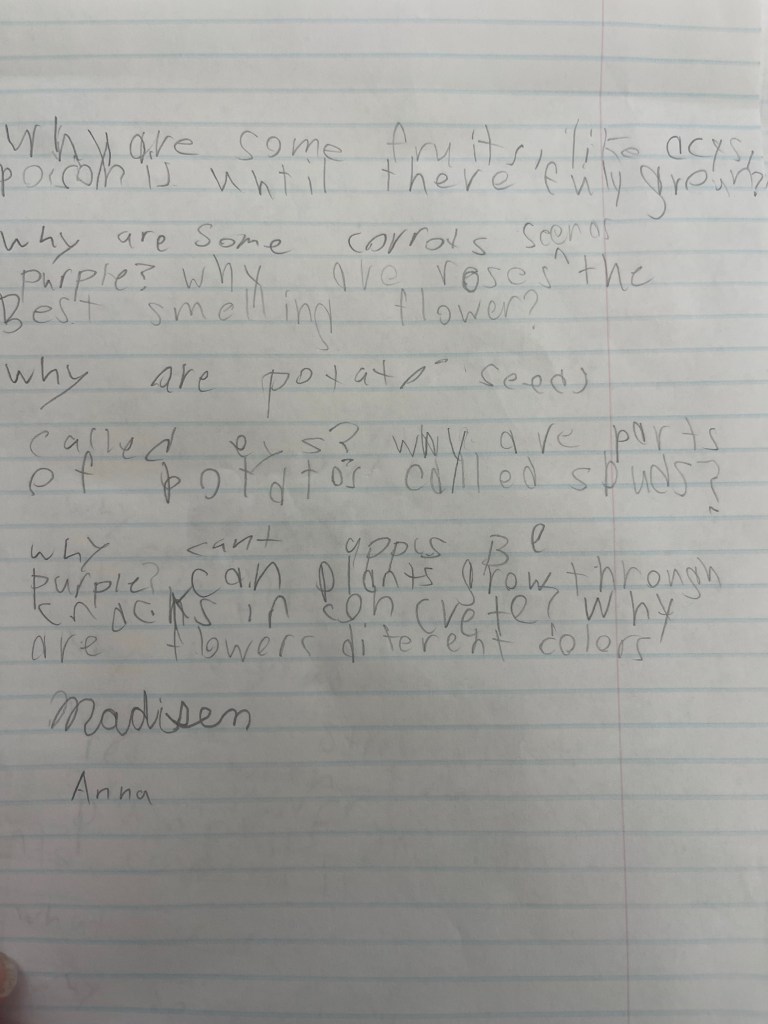 Why are some fruits, like acys,
poisom is until there fuly grown?
why are some corrots
purple? why are roses ^ the
Best smelling flower?
why are potato seeds
called eys? why are parts
of potatos called spuds?
why cant appls Be
purple? can plants grow through
cracks in concrete? Why
are flowers diferent colors
Madisen
Anna